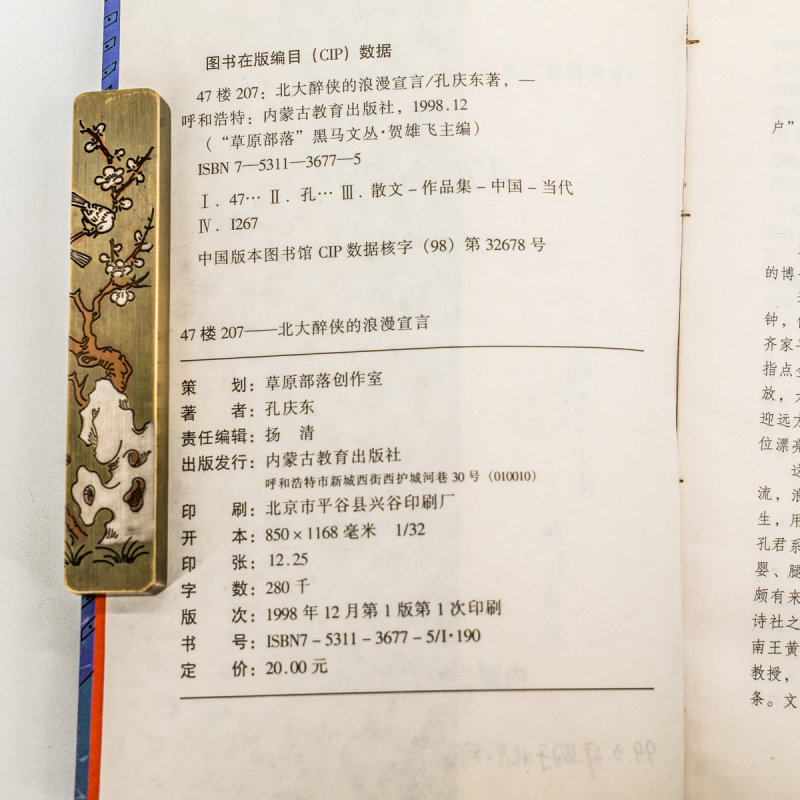 图书在版编目（CIP）数据
47 楼 207：北大醉侠的浪漫宣言/孔庆东著，—
呼和浩特：内蒙古教育出版社，1998.12
（“草原部落”黑马文丛·贺雄飞主编）
ISBN 7—5311—3677—5
Ⅰ．47… Ⅱ．孔… Ⅲ．散文－作品集－中国－当代
Ⅳ．I267
中国版本图书馆 CIP 数据核字（98）第 32678 号
47 楼 207——北大醉侠的浪漫宣言
策　　划：草原部落创作室
著　　者：孔庆东
责任编辑：扬　清
出版发行：内蒙古教育出版社
呼和浩特市新城西街西护城河巷 30 号（010010）
印　　刷：北京市平谷县兴谷印刷厂
开　　本：850×1168 毫米　1/32
印　　张：12.25
字　　数：280 千
版　　次：1998 年 12 月第 1 版第 1 次印刷
书　　号：ISBN7－5311－3677－5/I·190
定　　价：20.00 元
户”
的博
钟，
齐家
指点
放，
迎远方
位漂亮
这
流，浪
生，用
孔君系
婴、腿
颇有来
诗社之
南王黄
教授，
条。文